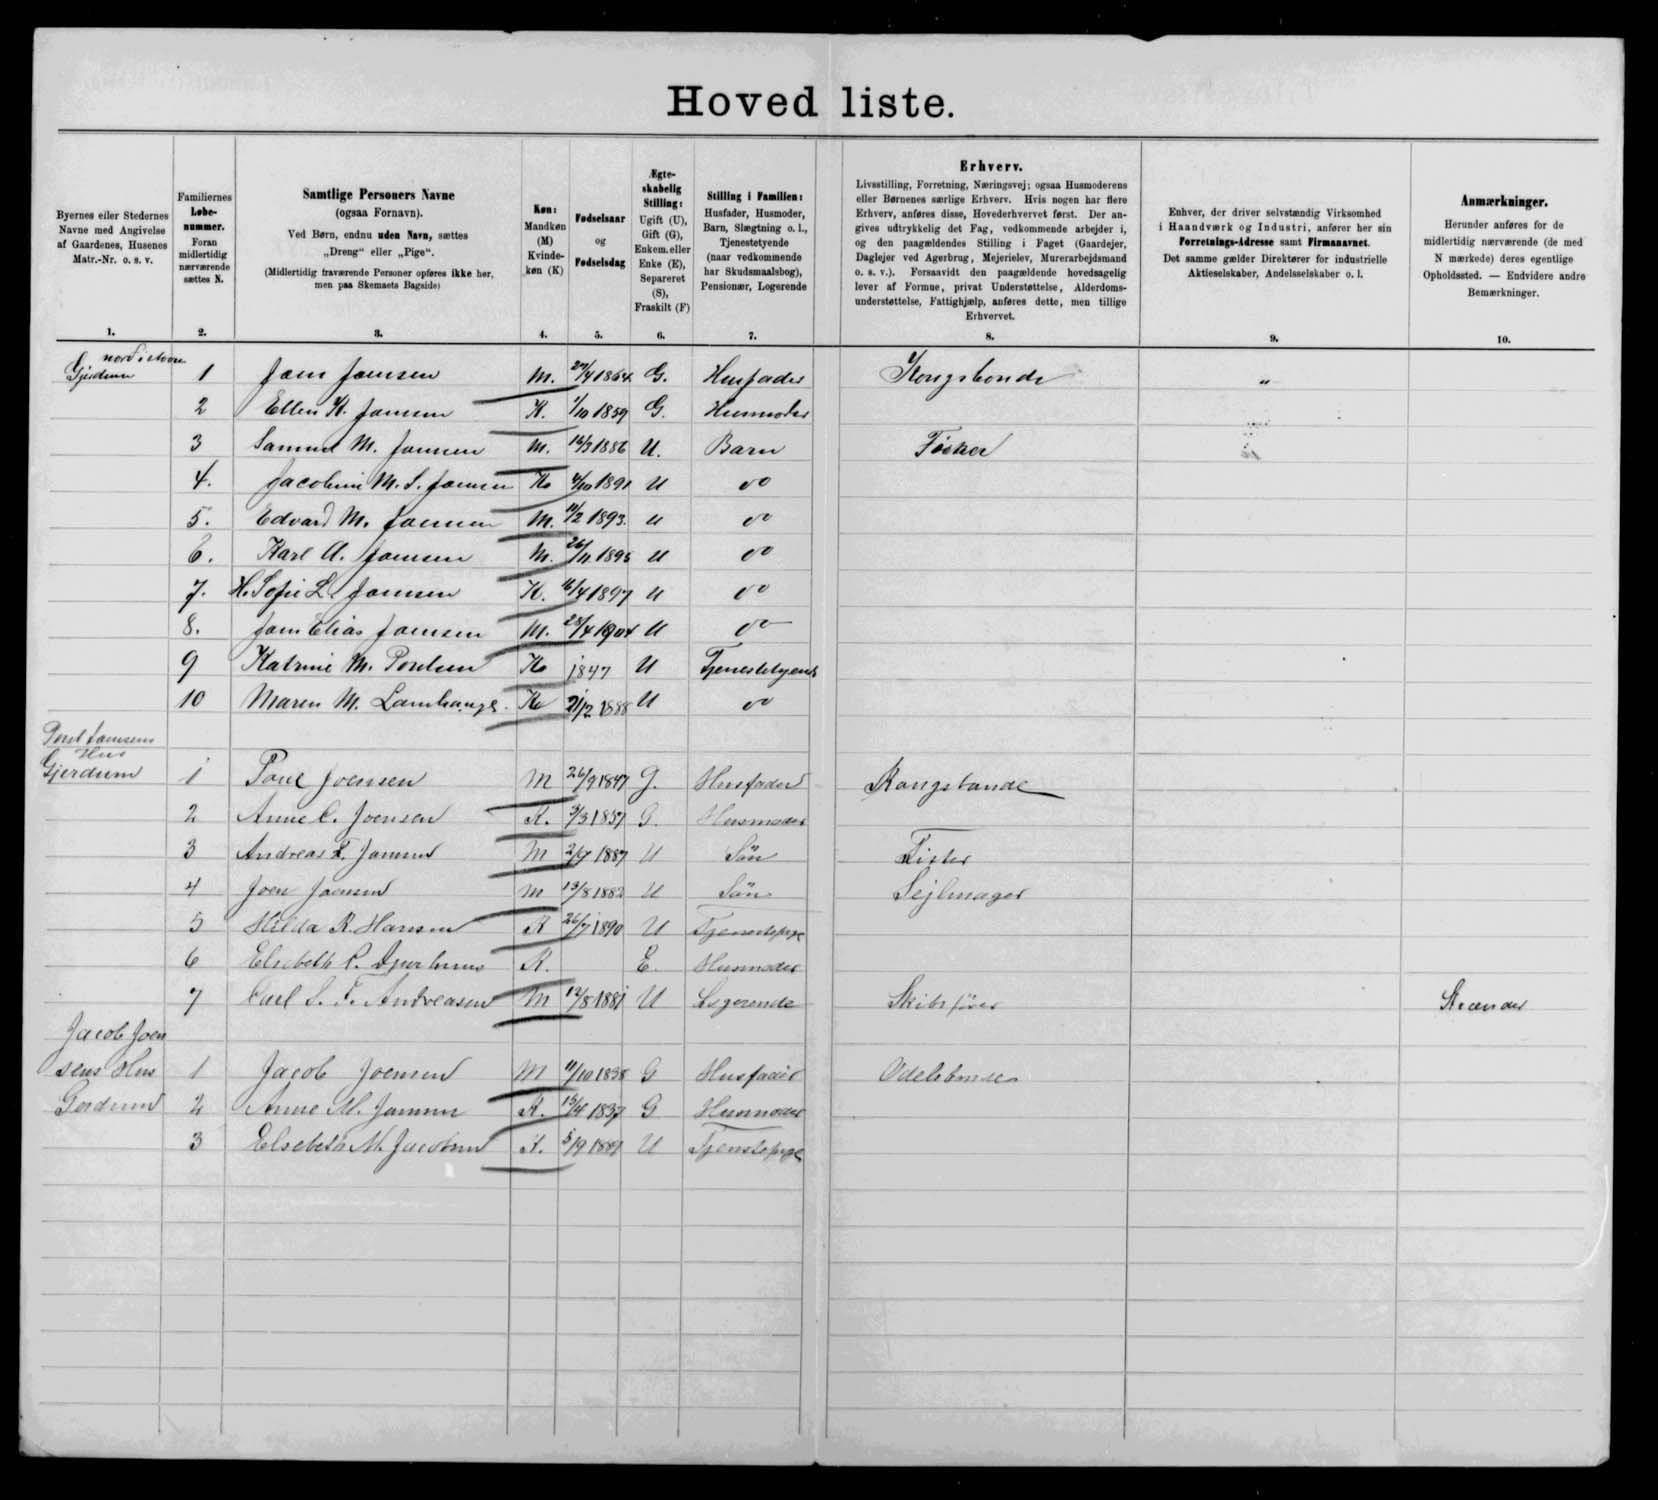 Hoved liste.
Byernes eller Stedernes
Navne med Angivelse
af Gaardenes, Husenes
Matr.-Nr. o. s. v.
1.
Familiernes
Løbe-
nummer.
Foran
midlertidig
nærværende
sættes N.
2.
Samtlige Personers Navne
(ogsaa Fornavn).
Ved Børn, endnu uden Navn, sættes
„Dreng“ eller „Pige“.
(Midlertidig fraværende Personer opføres ikke her,
men paa Skemaets Bagside)
3.
Køn:
Mandkøn
(M)
Kvinde-
køn (K)
4.
Fødselsaar
og
Fødselsdag
5.
Ægte-
skabelig
Stilling:
Ugift (U),
Gift (G),
Enkem. eller
Enke (E),
Separeret
(S),
Fraskilt (F)
6.
Stilling i Familien:
Husfader, Husmoder,
Barn, Slægtning o. l.,
Tjenestetyende
(naar vedkommende
har Skudsmaalsbog),
Pensionær, Logerende
7.
Erhverv.
Livsstilling, Forretning, Næringsvej; ogsaa Husmoderens
eller Børnenes særlige Erhverv. Hvis nogen har flere
Erhverv, anføres disse, Hovederhvervet først. Der an-
gives udtrykkelig det Fag, vedkommende arbejder i,
og den paagældendes Stilling i Faget (Gaardejer,
Daglejer ved Agerbrug, Mejerielev, Murerarbejdsmand
o. s. v.). Forsaavidt den paagældende hovedsagelig
lever af Formue, privat Understøttelse, Alderdoms-
understøttelse, Fattighjælp, anføres dette, men tillige
Erhvervet.
8.
Enhver, der driver selvstændig Virksomhed
i Haandværk og Industri, anfører her sin
Forretnings-Adresse samt Firmanavnet.
Det samme gælder Direktører for industrielle
Aktieselskaber, Andelsselskaber o. l.
9.
Anmærkninger.
Herunder anføres for de
midlertidig nærværende (de med
N mærkede) deres egentlige
Opholdssted. — Endvidere andre
Bemærkninger.
10.
Gjerdum 1 Joen Joensen M. 27/4 1864 G. Husfader Kongsbonde "
2 Ellen K. Joensen K. 1/10 1859 G. Husmoder
3 Samuel M. Joensen M. 1886 U. Barn Fisker
4. Jacobine M. S. Joensen K 4/10 1891 U do
5. Edvard M. Joensen M. 11/2 1893 U do
6. Karl A. Joensen M. 26/11 1895 U do
7. H. Sofie L. Joensen K. 16/4 1897 U do
8. Joen Elias Joensen M. 28/4 1904 U do
9 Katrine M. Poulsen K 1847 U Tjenestetyende
10 Maren M. Lamhauge K 21/12 1888 U do
Poul Joensens
Hus
Gjerdum 1 Poul Joensen M 26/9 1847 G. Husfader Kongsbonde
2 Anne C. Joensen K. 3/3 1857 G. Husmoder
3 Andreas F. Joensen M 2/7 1887 U Sön Fisker
4 Joen Joensen M 13/8 1882 U Sön Sejlmager
5 Hilda R. Hansen K 26/7 1890 U Tjenestepige
6 Elsebeth P. Djurhuus K. E. Husmoder
7 Carl S. F. Andreasen M 12/8 1881 U Logerende Skibsfører Strænder
Jacob Joen
sens Hus 1 Jacob Joensen M 11/10 1838 G Husfader Odelsbonde
Gerdum 2 Anne M. Joensen K. 15/4 1837 G Husmoder
3 Elsebeth M. Jacobsen K. 5/9 1881 U Tjenstepige